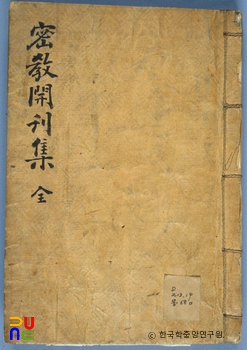 密教開刊集 全
PUNC
© 한국학중앙연구원